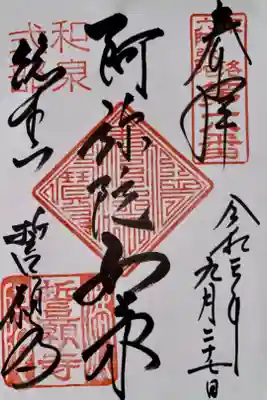 奉拝
令和三年
九月二十七日
阿弥陀如来
和泉
式部
総本山
誓願寺
誓願寺